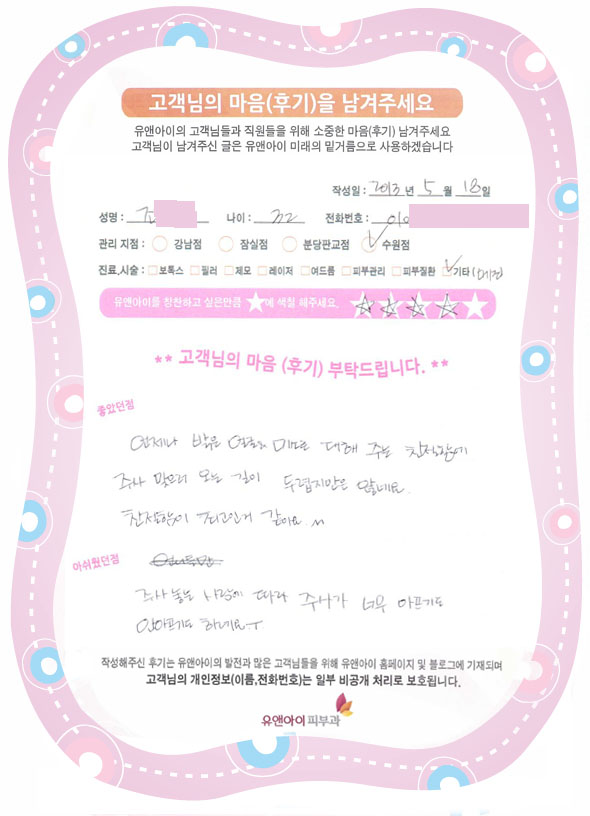 고객님의 마음(후기)을 남겨주세요
유앤아이의 고객님들과 직원들을 위해 소중한 마음(후기) 남겨주세요
고객님이 남겨주신 글은 유앤아이 미래의 밑거름으로 사용하겠습니다
작성일 : 2013 년 5 월 18 일
성명 : 나이 : 32 전화번호 : 010
관리 지점 : 강남점 잠실점 분당판교점 수원점
진료,시술 : 보톡스 필러 제모 레이저 여드름 피부관리 피부질환 기타
유앤아이를 칭찬하고 싶은만큼 ★에 색칠 해주세요.
** 고객님의 마음 (후기) 부탁드립니다. **
좋았던점
언제나 밝은 얼굴과 미소로 대해 주는 친절함에
주사 맞으러 오는 길이 두렵지만은 않네요.
친절함이 최고인거 같아요 ^^
아쉬웠던점
주사 놓는 사람에 따라 주사가 너무 아프기도
안아프기도 하네요ㅜ
작성해주신 후기는 유앤아이의 발전과 많은 고객님들을 위해 유앤아이 홈페이지 및 블로그에 기재되며
고객님의 개인정보(이름,전화번호)는 일부 비공개 처리로 보호됩니다.
유앤아이피부과